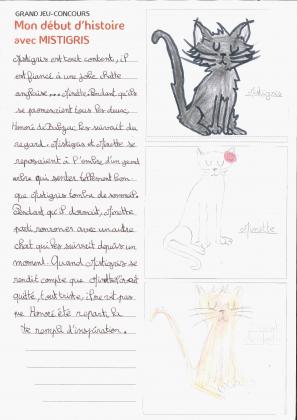 GRAND JEU-CONCOURS
Mon début d'histoire
avec MISTIGRIS
Mistigris est tout content, il
est fiancé à une jolie chatte
anglaise... Minette. Pendant qu'ils
se promenaient tous les deux,
Honoré de Balzac les suivait du
regard. Mistigris et Minette se
reposaient à l'ombre d'un grand
arbre qui sentait tellement bon
que Mistigris tomba de sommeil.
Pendant qu'il dormait, Minette
part ronronner avec un autre
chat qui les suivait depuis un
moment. Quand Mistigris se
rendit compte que Minette l'avait
quitté, tout triste, il ne vit pas
que Honoré été reparti, la
tête rempli d'inspiration.
Mistigris
Minette